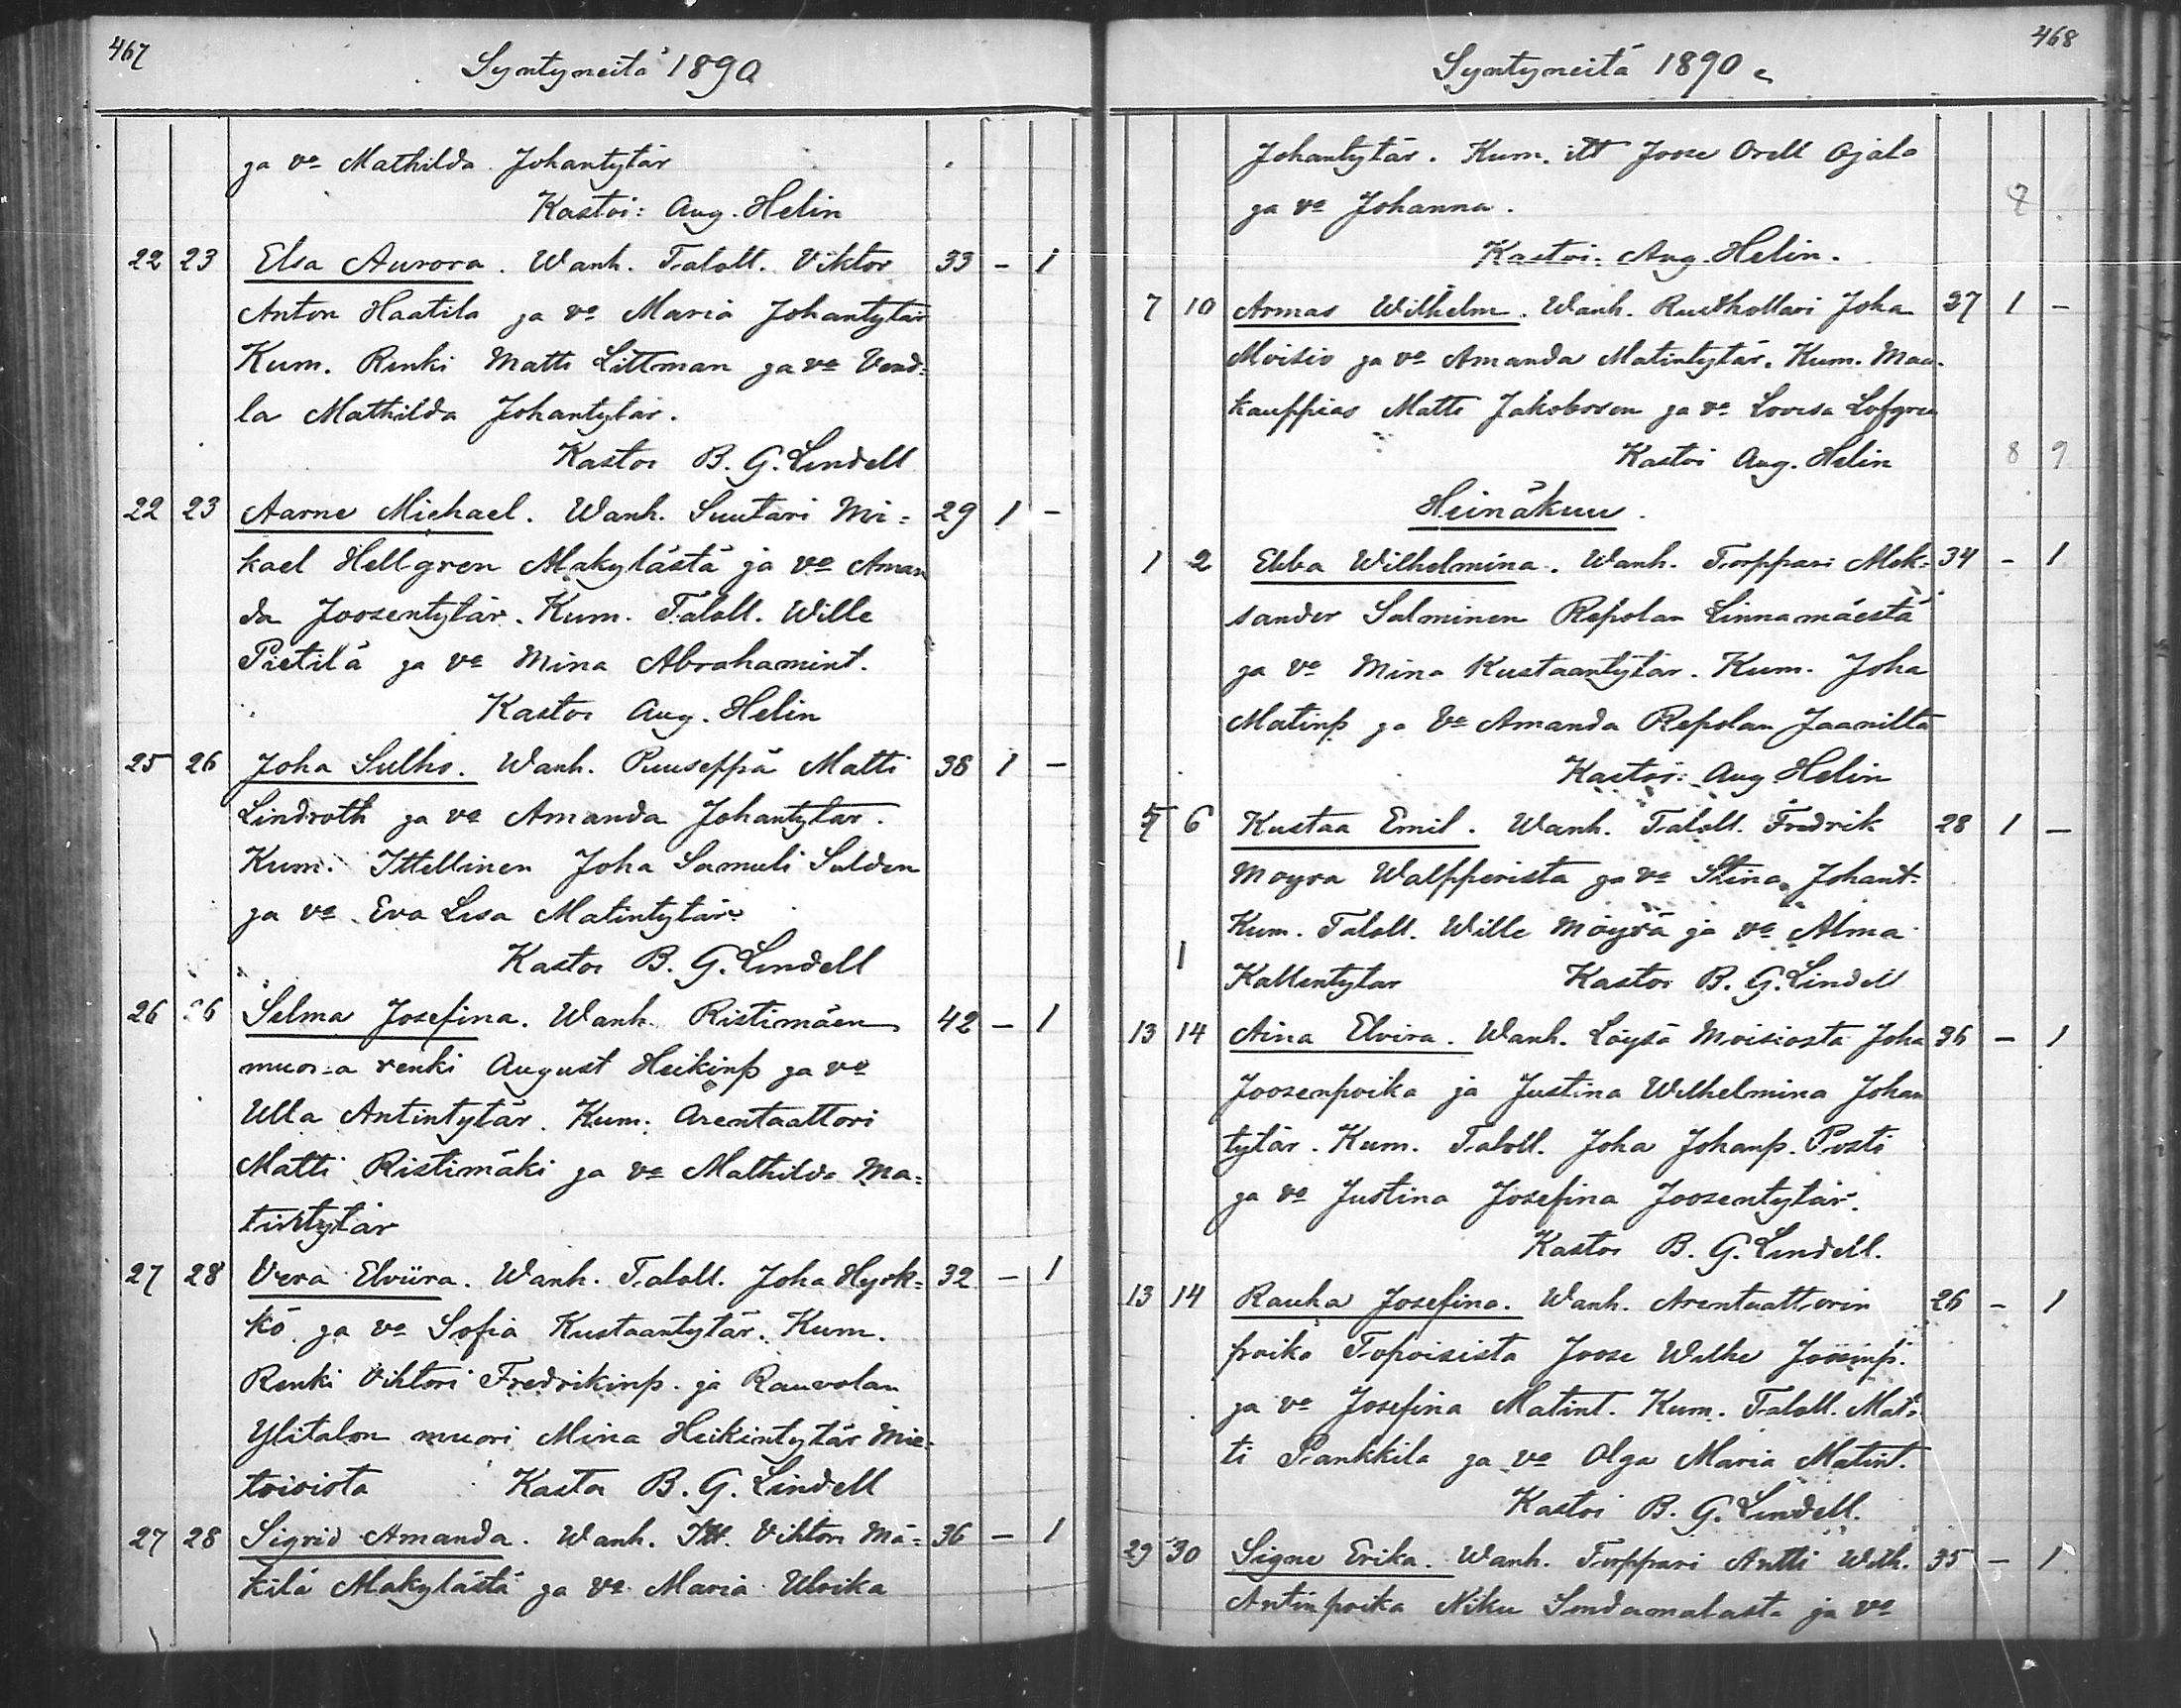 467
Syntyneitä 1890
ja vo Mathilda Johantytär
Kastoi: Aug. Helin
22 23 Elsa Aurora. Wanh. Taloll. Viktor 33 - 1
Anton Haatila ja vo Maria Johantytär
Kum. Renki Matti Littman ja vo Vend=
la Mathilda Johantytär.
Kastoi B. G. Lindell
22 23 Aarne Michael. Wanh. Suutari Mi= 29 1 -
kael Hellgren Alakylästä ja vo Aman
da Joosentytär. Kum. Taloll. Wille
Pietilä ja vo Mina Abrahamint.
Kastoi Aug. Helin
25 26 Joha Sulho. Wanh. Puuseppä Matti 38 1 -
Lindroth ja vo Amanda Johantytar.
Kum. Ittellinen Joha Samuli Salden
ja vo Eva Lisa Matintytär
Kastoi B. G. Lindell
26 26 Selma Josefina. Wanh. Ristimäen 42 - 1
renki August Heikinp ja vo
Ulla Antintytär. Kum. Arentaattori
Matti Ristimäki ja vo Mathilda Ma=
tintytär
27 28 Vera Elviira. Wanh. Taloll. Joha Hyrk= 32 - 1
kö ja vo Sofia Kustaantytär. Kum.
Renki Viktori Fredrikinp. ja Rauvolan
Ylitalon muori Mina Heikintytär Mie
toisista Kastoi B. G. Lindell
27 28 Sigrid Amanda. Wanh. Itt. Viktori Mä= 36 - 1
kilä Alakylästä ja vo Maria Ulrika
468
Syntyneitä 1890
Johantytär. Kum. itt Joose Orell Ojala
ja vo Johanna.
Kastoi: Aug. Helin.
7 10 Armas Wilhelm. Wanh. Rusthollari Joha 37 1 -
Moisio ja vo Amanda Matintytär. Kum. Maa
kauppias Matti Jakobsson ja vo Lovisa Lofgren
Kastoi Aug. Helin 8 9
Heinäkuu.
1 2 Ebba Wilhelmina. Wanh. Torppari Alek= 34 - 1
sander Salminen Repolan Linnamäestä
ja vo Mina Kustaantytär. Kum. Joha
Matinp ja vo Amanda Repolan Jaanilta
Kastoi: Aug Helin
5 6 Kustaa Emil. Wanh. Taloll. Fredrik 28 1 -
Moyra Walpperista ja vo Stina Johant.
Kum. Taloll. Wille Möyrä ja vo Alma
Kallentytar Kastoi B. G. Lindell
13 14 Aina Elvira. Wanh. Löysä Moisiosta Joha 36 - 1
Joosenpoika ja Justina Wilhelmina Johan
tytär. Kum. Taloll. Joha Johanp. Posti
ja vo Justina Josefina Joosentytär.
Kastoi B. G. Lindell.
13 14 Rauha Josefina. Wanh. Arentaattorin 26 - 1
poika Topoisista Joose Wilhe
ja vo Josefina Matint. Kum. Taloll. Mat=
ti Pankkila ja vo Olga Maria Matint.
Kastoi B. G. Lindell.
29 30 Signe Erika. Wanh. Torppari Antti Wilh. 35 - 1
Antinpoika Niku ja vo